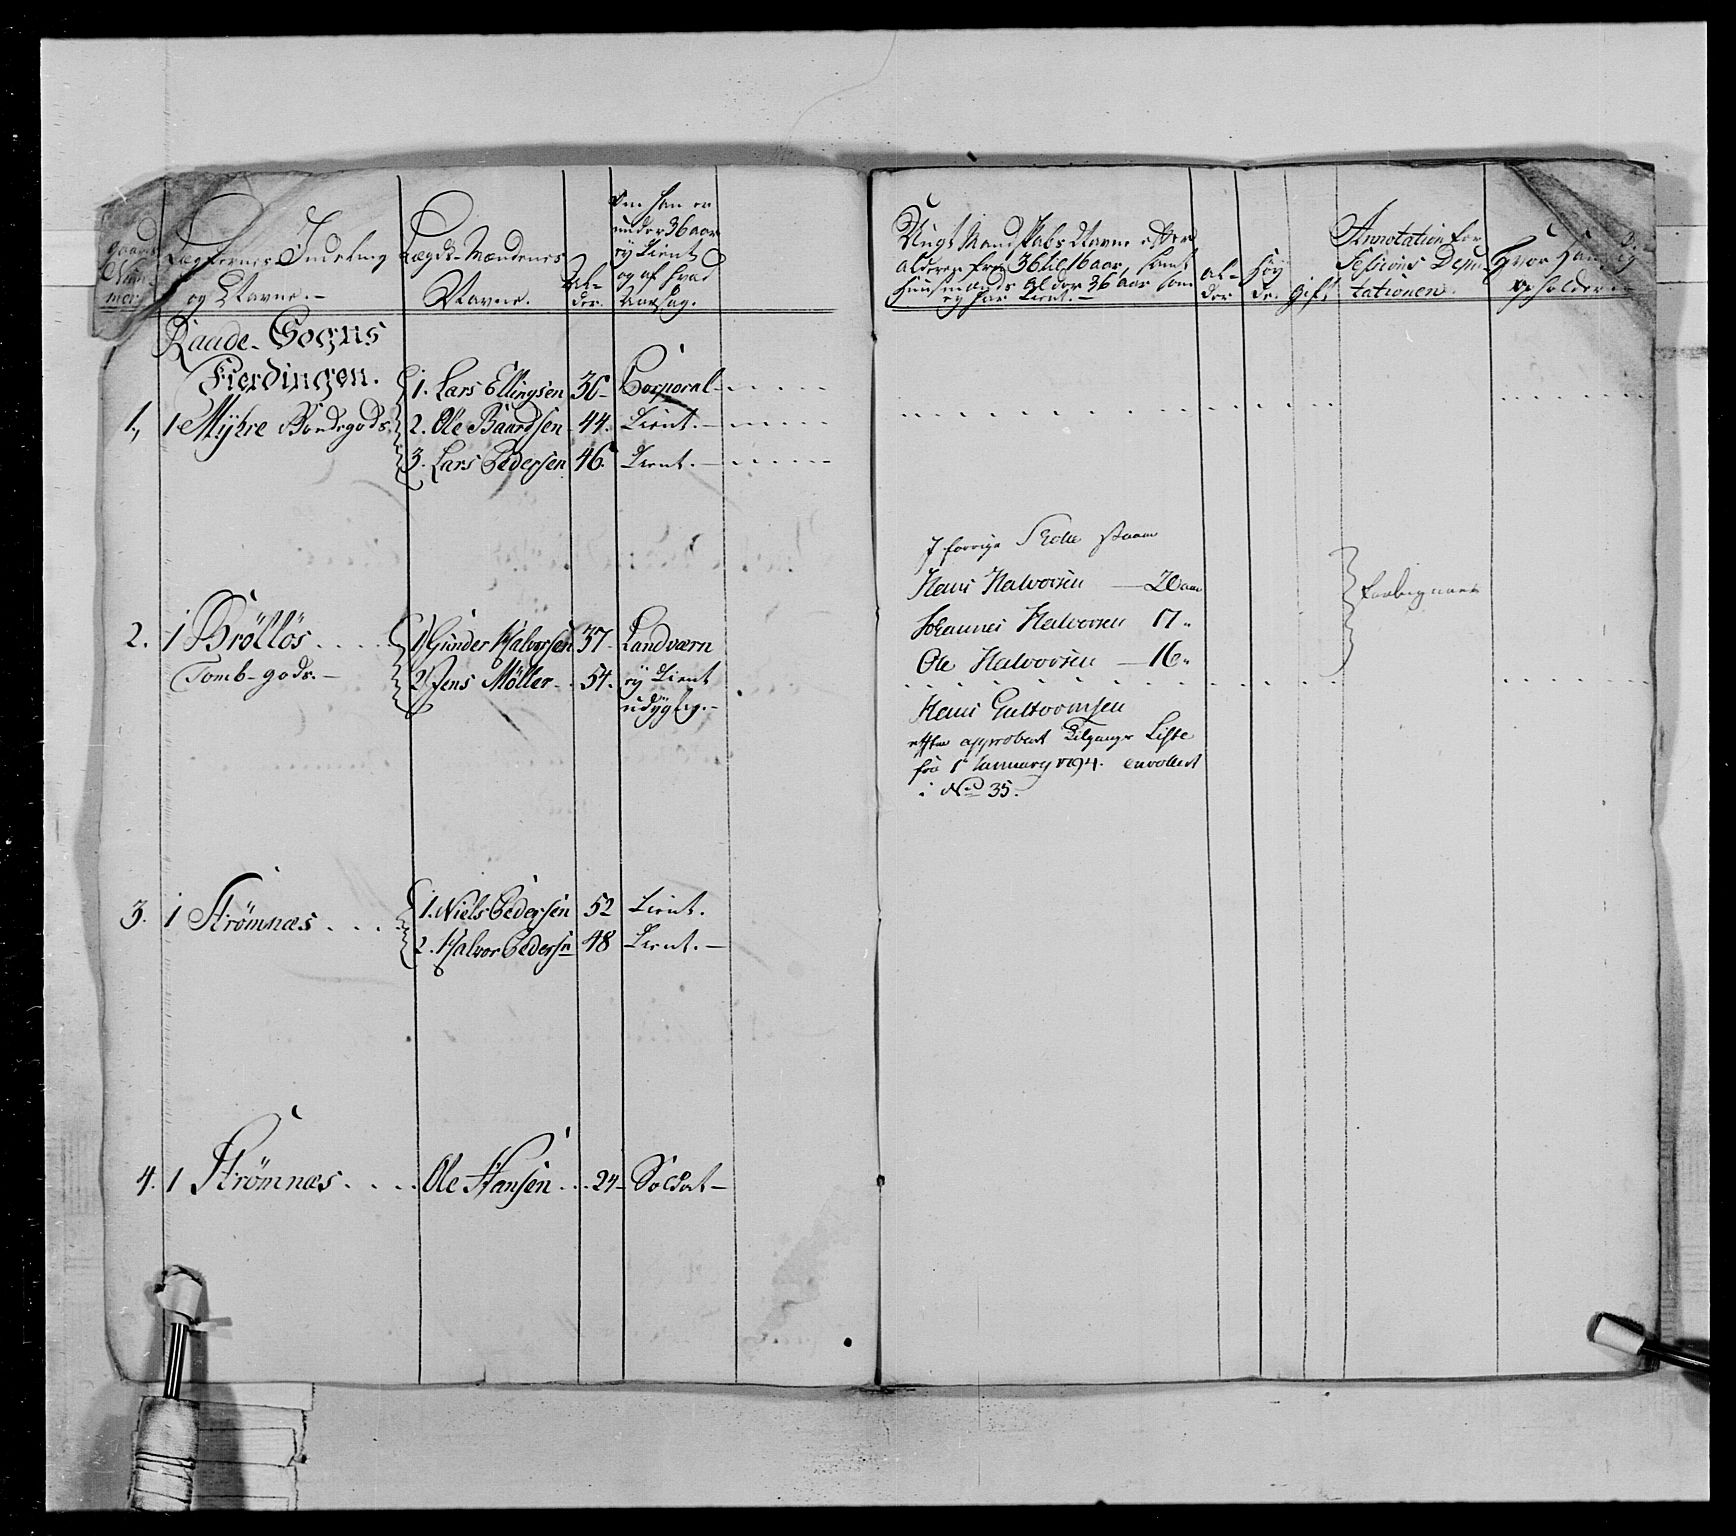 Gaard
Num
mer
Lægdernes Indeling
og Navne.-
Lægds-Mændenes
Navne.
Al-
der.
Om han er
under 36 aar
ey Tient
og af hvad
Aarsag.
Raade-Sogns
Fierdingen.
1. 1 Myhre Bondegods.
1. Lars Ellingsen 36 Corporal
2. Ole Baardsen 44. Tient.
3. Lars Pedersen 46. Tient.
2. 1 Bröllös
Tomb-gods.-
1. Gunder Halvorsen 37 Landværn
2. Jens Möller 54. ey Tient
udygtig.-
3. 1 Strömnæs
1. Niels Pedersen 52 Tient.
2. Halvor Pedersn 48 Tient.-
4. 1 Strömnæs Ole Hansen 24 Soldat
Ungt Mandskabs Navne efter
alderen fra 36 til 16 aar, samt
huusmænds under 36 aar som
ey har Tient.-
al-
der
Höy
de.
gift
Annotation for
Sessions Depu-
tationen
Hvor Han sig
opholder
I forrige Rolle staaer
Hans Halvorsen 20 aar
Johannes Halvorsen 17
Ole Halvorsen 16
Hans Guttormsen
efter approbert Tilgangs Liste
fra 1 January 1794. enrollert
i No 35.